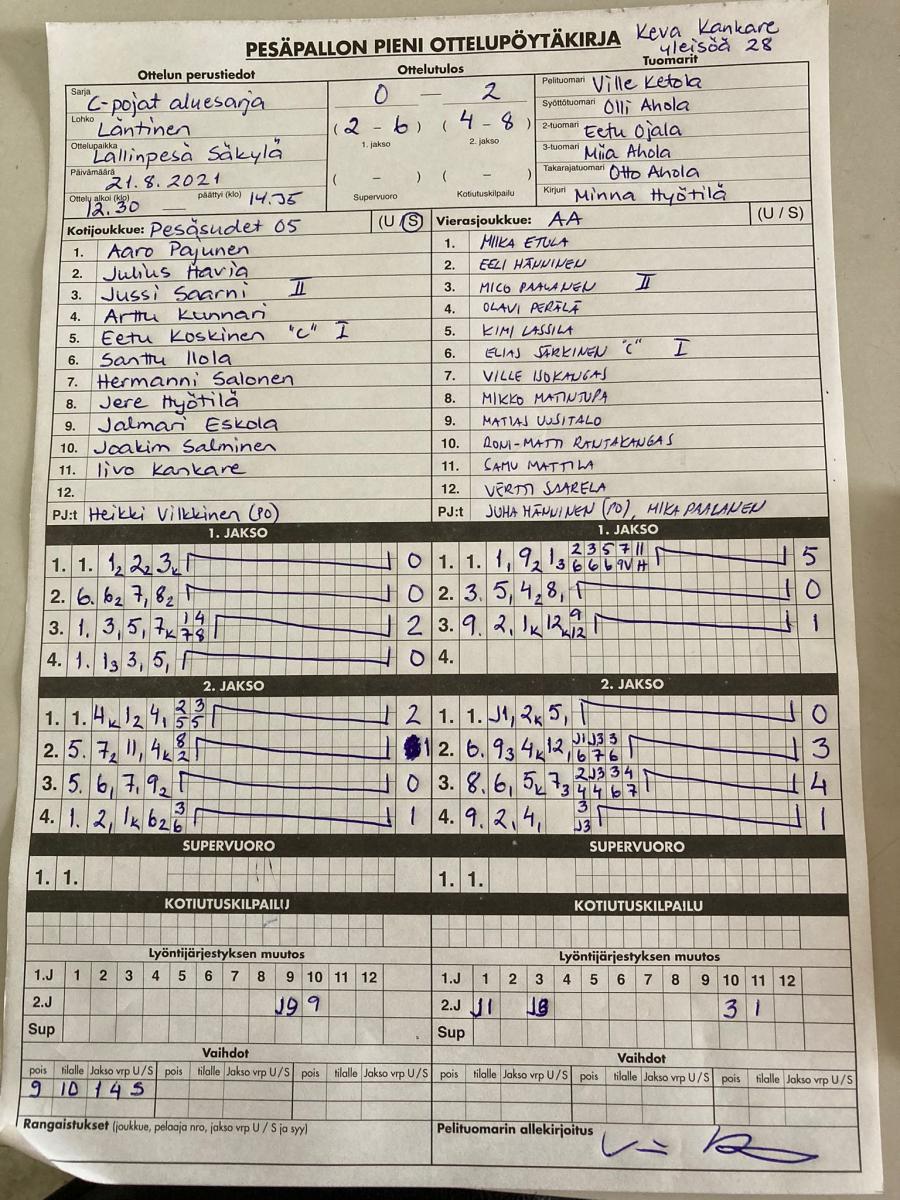 PESÄPALLON PIENI OTTELUPÖYTÄKIRJA
Keva Kankare
yleisöä 28
Ottelun perustiedot
Sarja
C-pojat aluesarja
Lohko
Läntinen
Ottelupaikka
Lallinpesä Säkylä
Päivämäärä
21.8.2021
Ottelu alkoi (klo) päättyi (klo)
12.30 — 14.35
Ottelutulos
0 — 2
(2 - 6) (4 - 8)
1. jakso 2. jakso
( - ) ( - )
Supervuoro Kotiutuskilpailu
Tuomarit
Pelituomari Ville Ketola
Syöttötuomari Olli Ahola
2-tuomari Eetu Ojala
3-tuomari Miia Ahola
Takarajatuomari Otto Ahola
Kirjuri Minna Hyötilä
Kotijoukkue: Pesäsudet 05 (U / S)
1. Aaro Pajunen
2. Julius Havia
3. Jussi Saarni II
4. Arttu Kunnari
5. Eetu Koskinen "C" I
6. Santtu Ilola
7. Hermanni Salonen
8. Jere Hyötilä
9. Jalmari Eskola
10. Joakim Salminen
11. Iivo Kankare
12.
PJ:t Heikki Vilkkinen (PO)
Vierasjoukkue: AA (U / S)
1. MIIKA ETULA
2. EELI HÄNNINEN
3. MICO PAALANEN II
4. OLAVI PERÄLÄ
5. KIMI LASSILA
6. ELIAS SÄRKINEN "C" I
7. VILLE ISOKANGAS
8. MIKKO MATINTUPA
9. MATIAS UUSITALO
10. RONI-MATTI RANTAKANGAS
11. SAMU MATTILA
12. VERTTI SAARELA
PJ:t JUHA HÄNNINEN (PO), MIKA PAALANEN
1. JAKSO
1. 1. 1₂ 2₂ 3ₖ 0
2. 6. 6₂ 7, 8₂ 0
3. 1. 3, 5, 7ₖ 1 4 2
7 8
4. 1. 1₃ 3, 5, 0
1. JAKSO
1. 1. 1, 9₂ 1₃ 2 3 5 7 11 5
6 6 6 9V H
2. 3. 5, 4₂ 8, 0
3. 9. 2, 1ₖ 12ₖ 9 1
12
4.
2. JAKSO
1. 1. 4ₖ 1₂ 4, 2 3 2
5 5
2. 5. 7₂ 11, 4ₖ 8 1
2
3. 5. 6, 7, 9₂ 0
4. 1. 2, 1ₖ 6₂ 3 1
6
2. JAKSO
1. 1. J1, 2ₖ 5, 0
2. 6. 9₃ 4ₖ 12, J1 J3 3 3
6 7 6
3. 8. 6, 5ₖ 7₃ 2 J3 3 4 4
4 4 6 7
4. 9. 2, 4, 3 1
J3
SUPERVUORO
1. 1.
SUPERVUORO
1. 1.
KOTIUTUSKILPAILU
KOTIUTUSKILPAILU
Lyöntijärjestyksen muutos
1.J 1 2 3 4 5 6 7 8 9 10 11 12
2.J J9 9
Sup
Lyöntijärjestyksen muutos
1.J 1 2 3 4 5 6 7 8 9 10 11 12
2.J J1 J3 3 1
Sup
Vaihdot
pois tilalle Jakso vrp U / S pois tilalle Jakso vrp U / S pois tilalle Jakso vrp U / S
9 10 1 4 S
Vaihdot
pois tilalle Jakso vrp U / S pois tilalle Jakso vrp U / S pois tilalle Jakso vrp U / S
Rangaistukset (joukkue, pelaaja nro, jakso vrp U / S ja syy)
Pelituomarin allekirjoitus